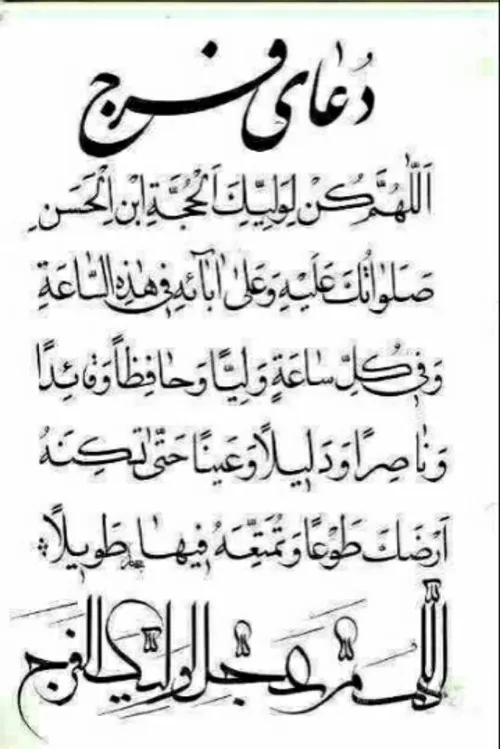 دُعٰای فرج
اَللّٰهُمَّ كُنْ لِوَلِيِّكَ الْحُجَّةِ ابْنِ الْحَسَنِ
صَلَوٰاتُكَ عَلَيْهِ وَعَلىٰ اٰبٰائِهِ فِي هٰذِهِ السّٰاعَةِ
وَفِي كُلِّ سٰاعَةٍ وَلِيًّا وَحٰافِظاً وَقٰائِدًا
وَنٰاصِرًا وَدَلِيلًا وَعَيْنًا حَتّىٰ تُسْكِنَهُ
اَرْضَكَ طَوْعًا وَتُمَتِّعَهُ فِيهٰا طَوِيلًا
اللّهم عجل لوليك الفرج